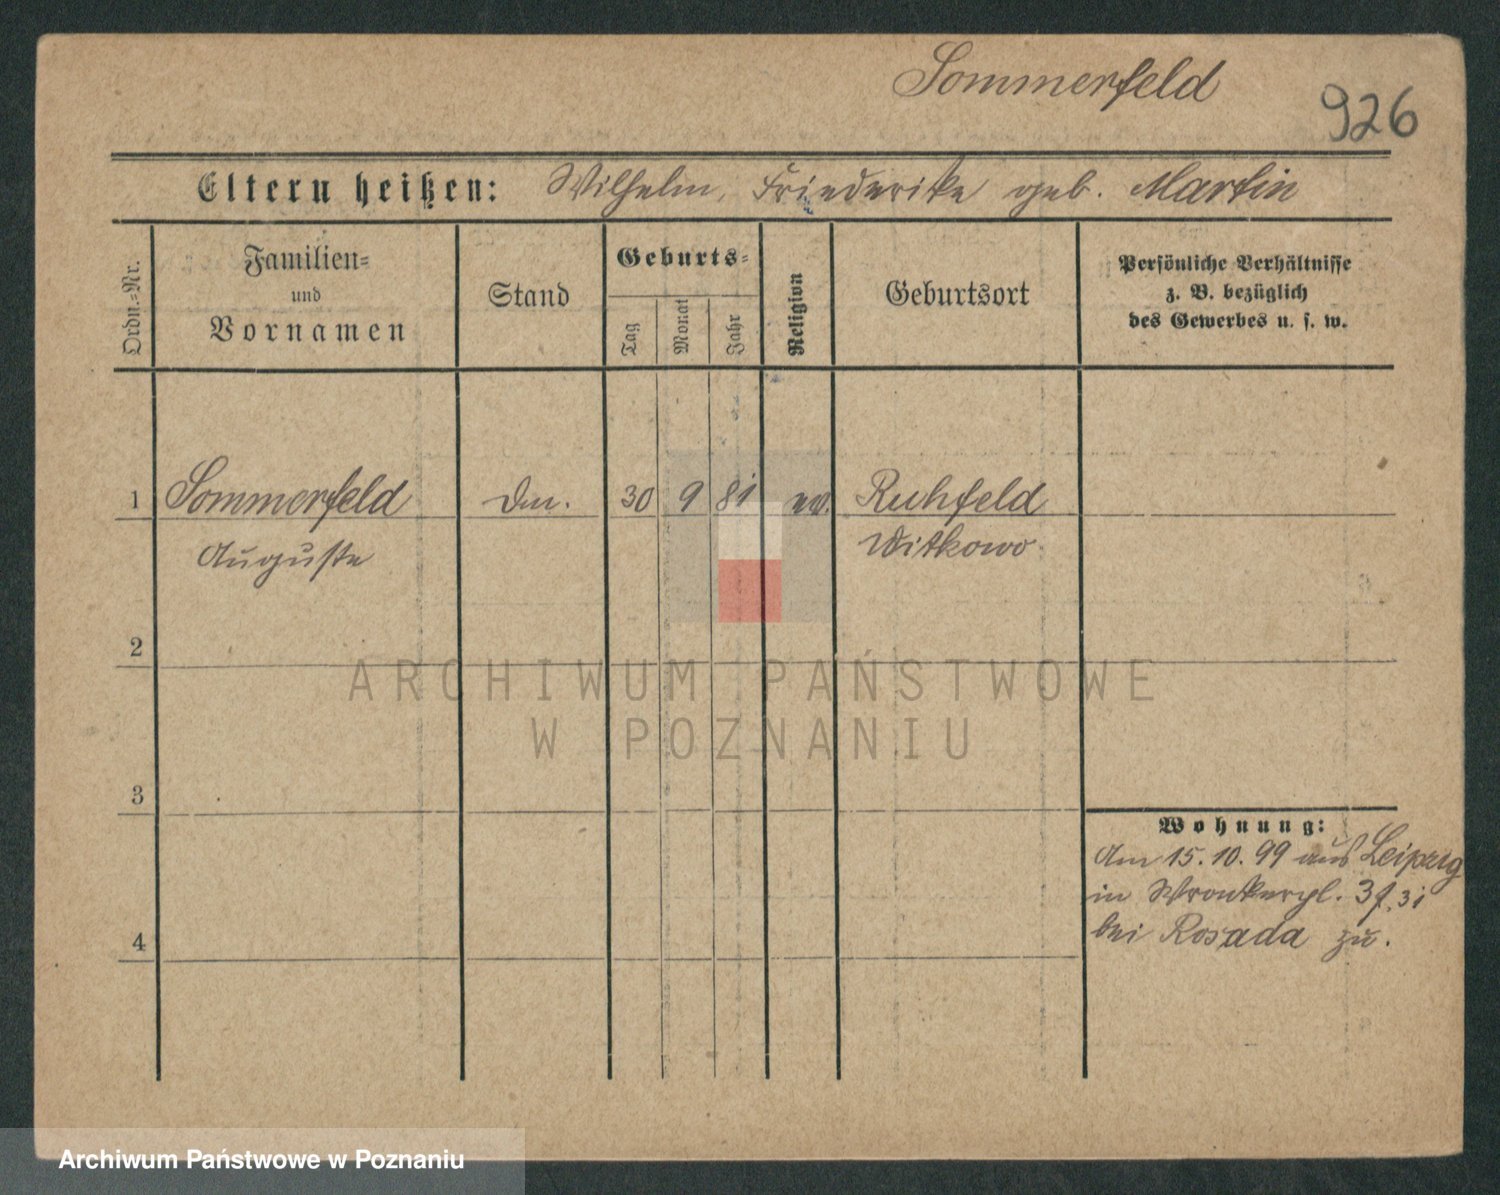 Sommerfeld
926
Eltern heißen: Wilhelm, Friederike geb. Martin
Ordn.=Nr.
Familien=
und
Vornamen
Stand
Geburts=
Tag
Monat
Jahr
Religion
Geburtsort
Persönliche Verhältnisse
z. B. bezüglich
des Gewerbes u. s. w.
1 Sommerfeld 30 9 81 ev. Ruhfeld
Auguste Witkowo
2
3
4
Wohnung:
Am 15. 10. 99 aus Leipzig
in Wronkerpl. 3
bei Rosada zu.
ARCHIWUM PAŃSTWOWE
W POZNANIU
Archiwum Państwowe w Poznaniu